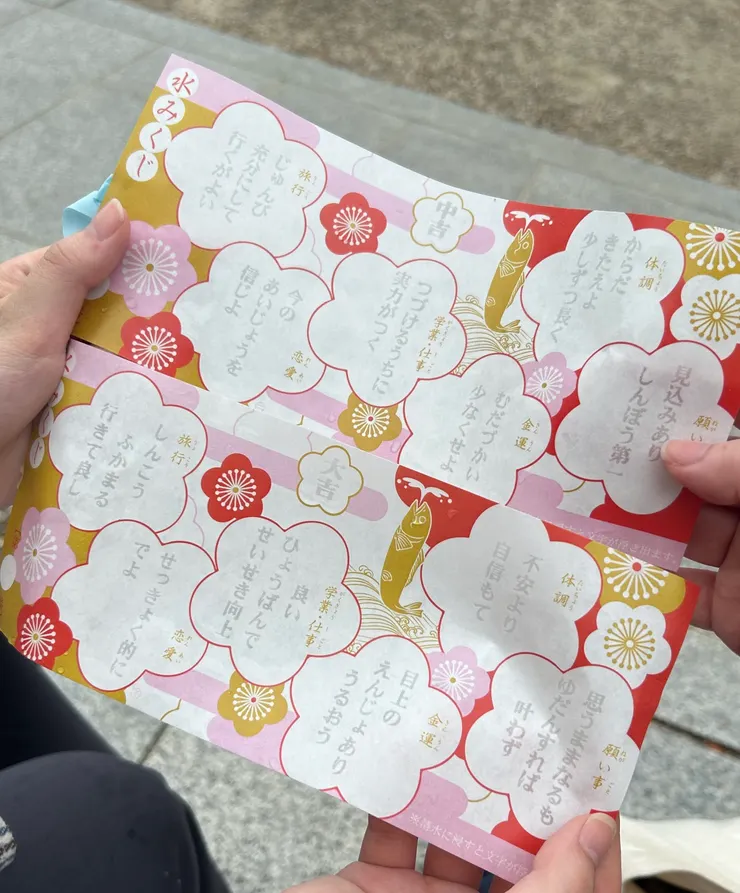 水みくじ
中吉
願い
見込みあり
しんぼう第一
体調
からだ
きたえよ
少しずつ長く
金運
むだづかい
少なくせよ
学業・仕事
つづけるうちに
実力がつく
恋愛
今の
あいじょうを
信じよ
旅行
じゅんび
充分にして
行くがよい
すと文字が浮き出ます。
大吉
願い事
思うままなるも
ゆだんすれば
叶わず
体調
不安より
自信もて
金運
目上の
えんじょあり
うるおう
学業・仕事
良い
ひょうばんで
せいせき向上
恋愛
せっきょく的に
でよ
旅行
しんこう
ふかまる
行きて良し
清水に浸すと文字が